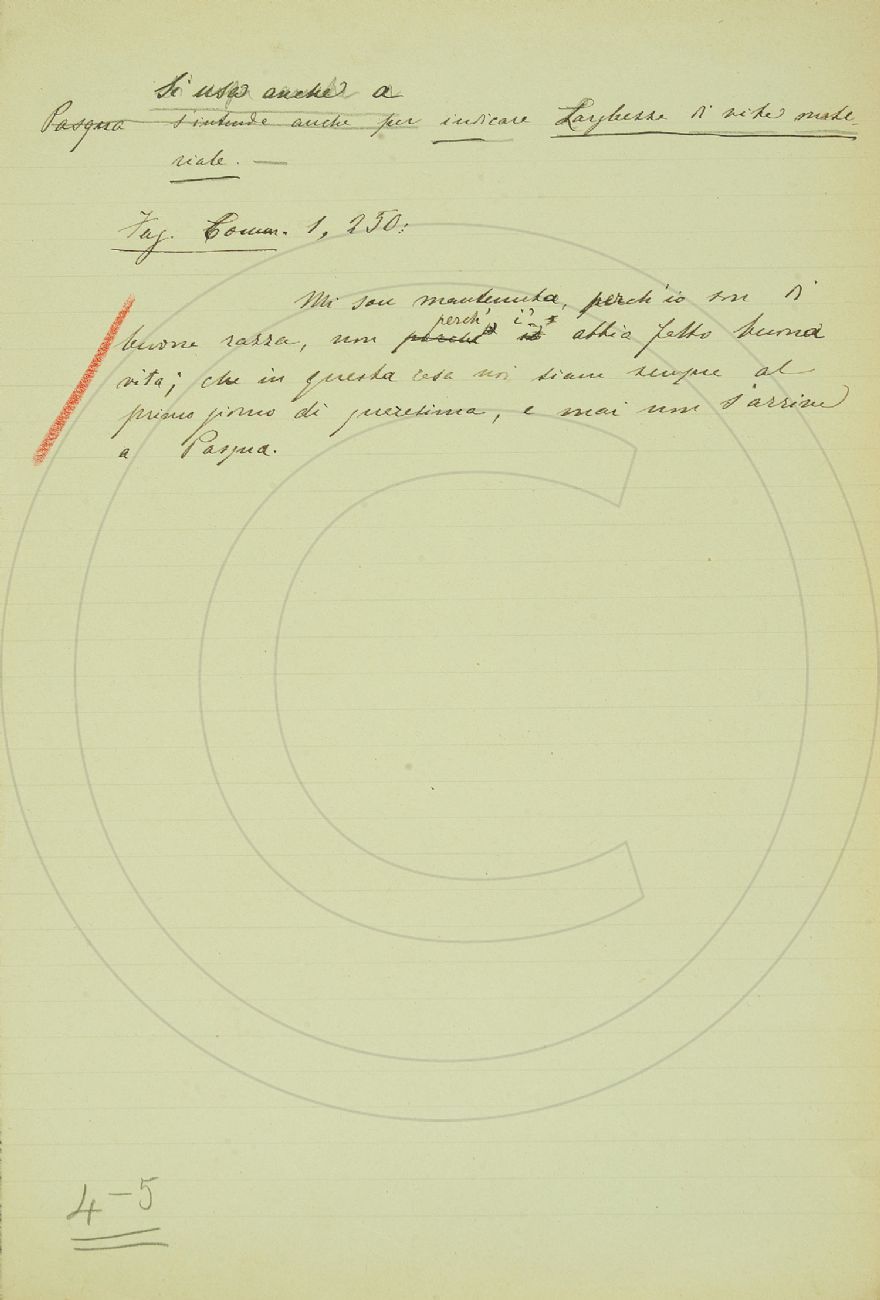 Si usa anche a
Pasqua s'intende anche per indicare Larghezza di vita mate
riale. —
Fag. Comm. 1, 250:
Mi son mantenuta, perch'io son di
perch' i'
buona razza, non perchè io abbia fatto buona
vita; che in questa casa noi siam sempre al
primo giorno di quaresima, e mai non s'arriva
a Pasqua.
4-5